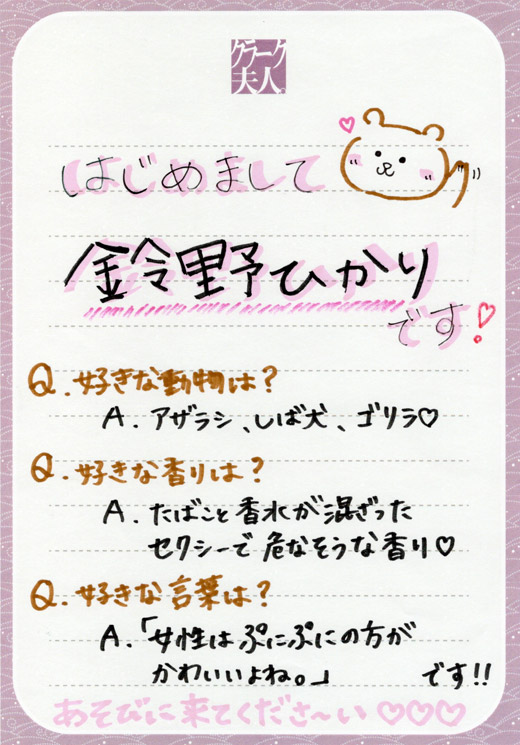 クラーク
夫人
はじめまして
鈴野ひかり
です!
Q.好きな動物は?
A.アザラシ、しば犬、ゴリラ♡
Q.好きな香りは?
A.たばこと香水が混ざった
セクシーで危なそうな香り♡
Q.好きな言葉は?
A.「女性はぷにぷにの方が
かわいいよね。」 です!!
あそびに来てくださ〜い♡♡♡